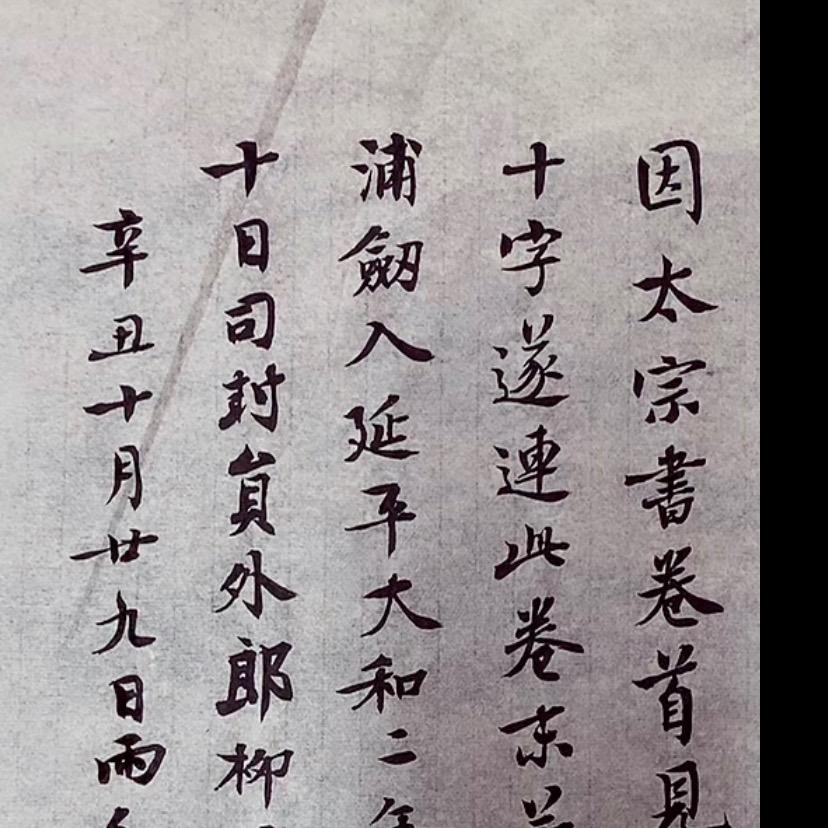 因太宗書卷首見
十字遂連此卷末
浦劒入延平大和二年
十日司封員外郎柳
辛丑十月廿九日雨